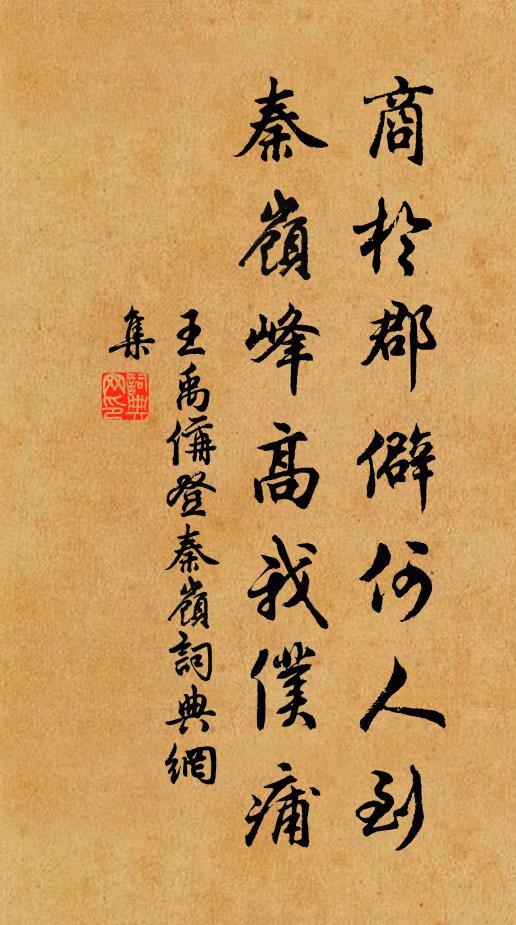 商於郡僻何人到
秦嶺峰高我僕痡
王禹偁登秦嶺詞典網
集
詞典
网印